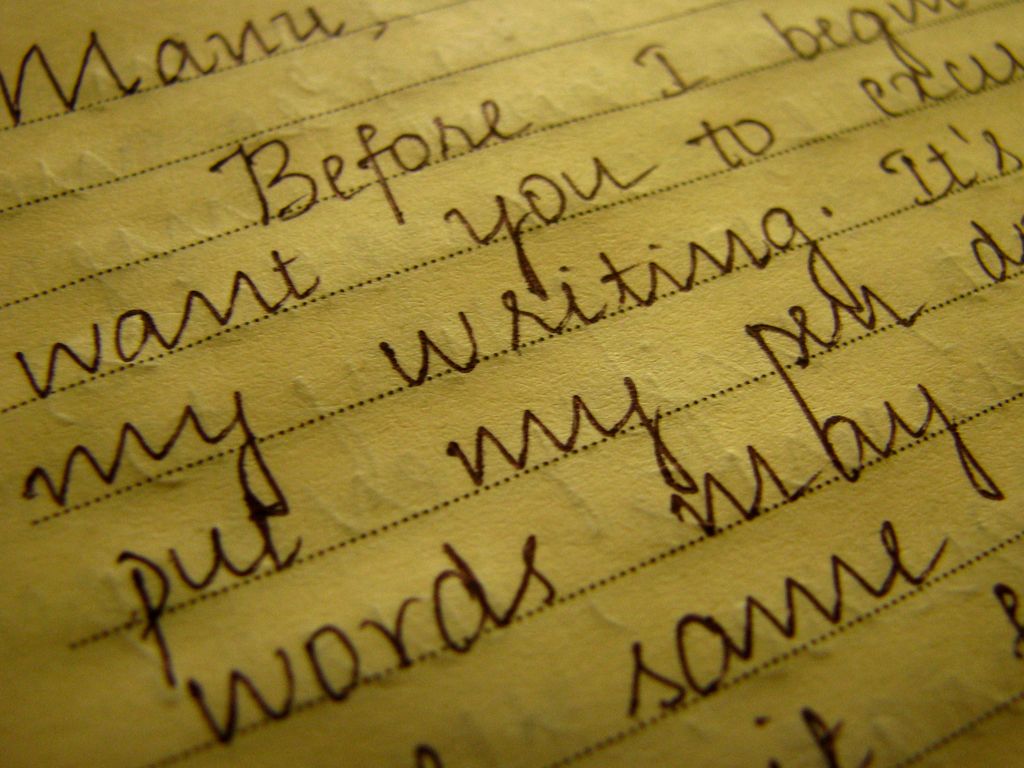 Manu,
Before I begin
want you to excu
my writing. It's
put my pen do
words may
some
it